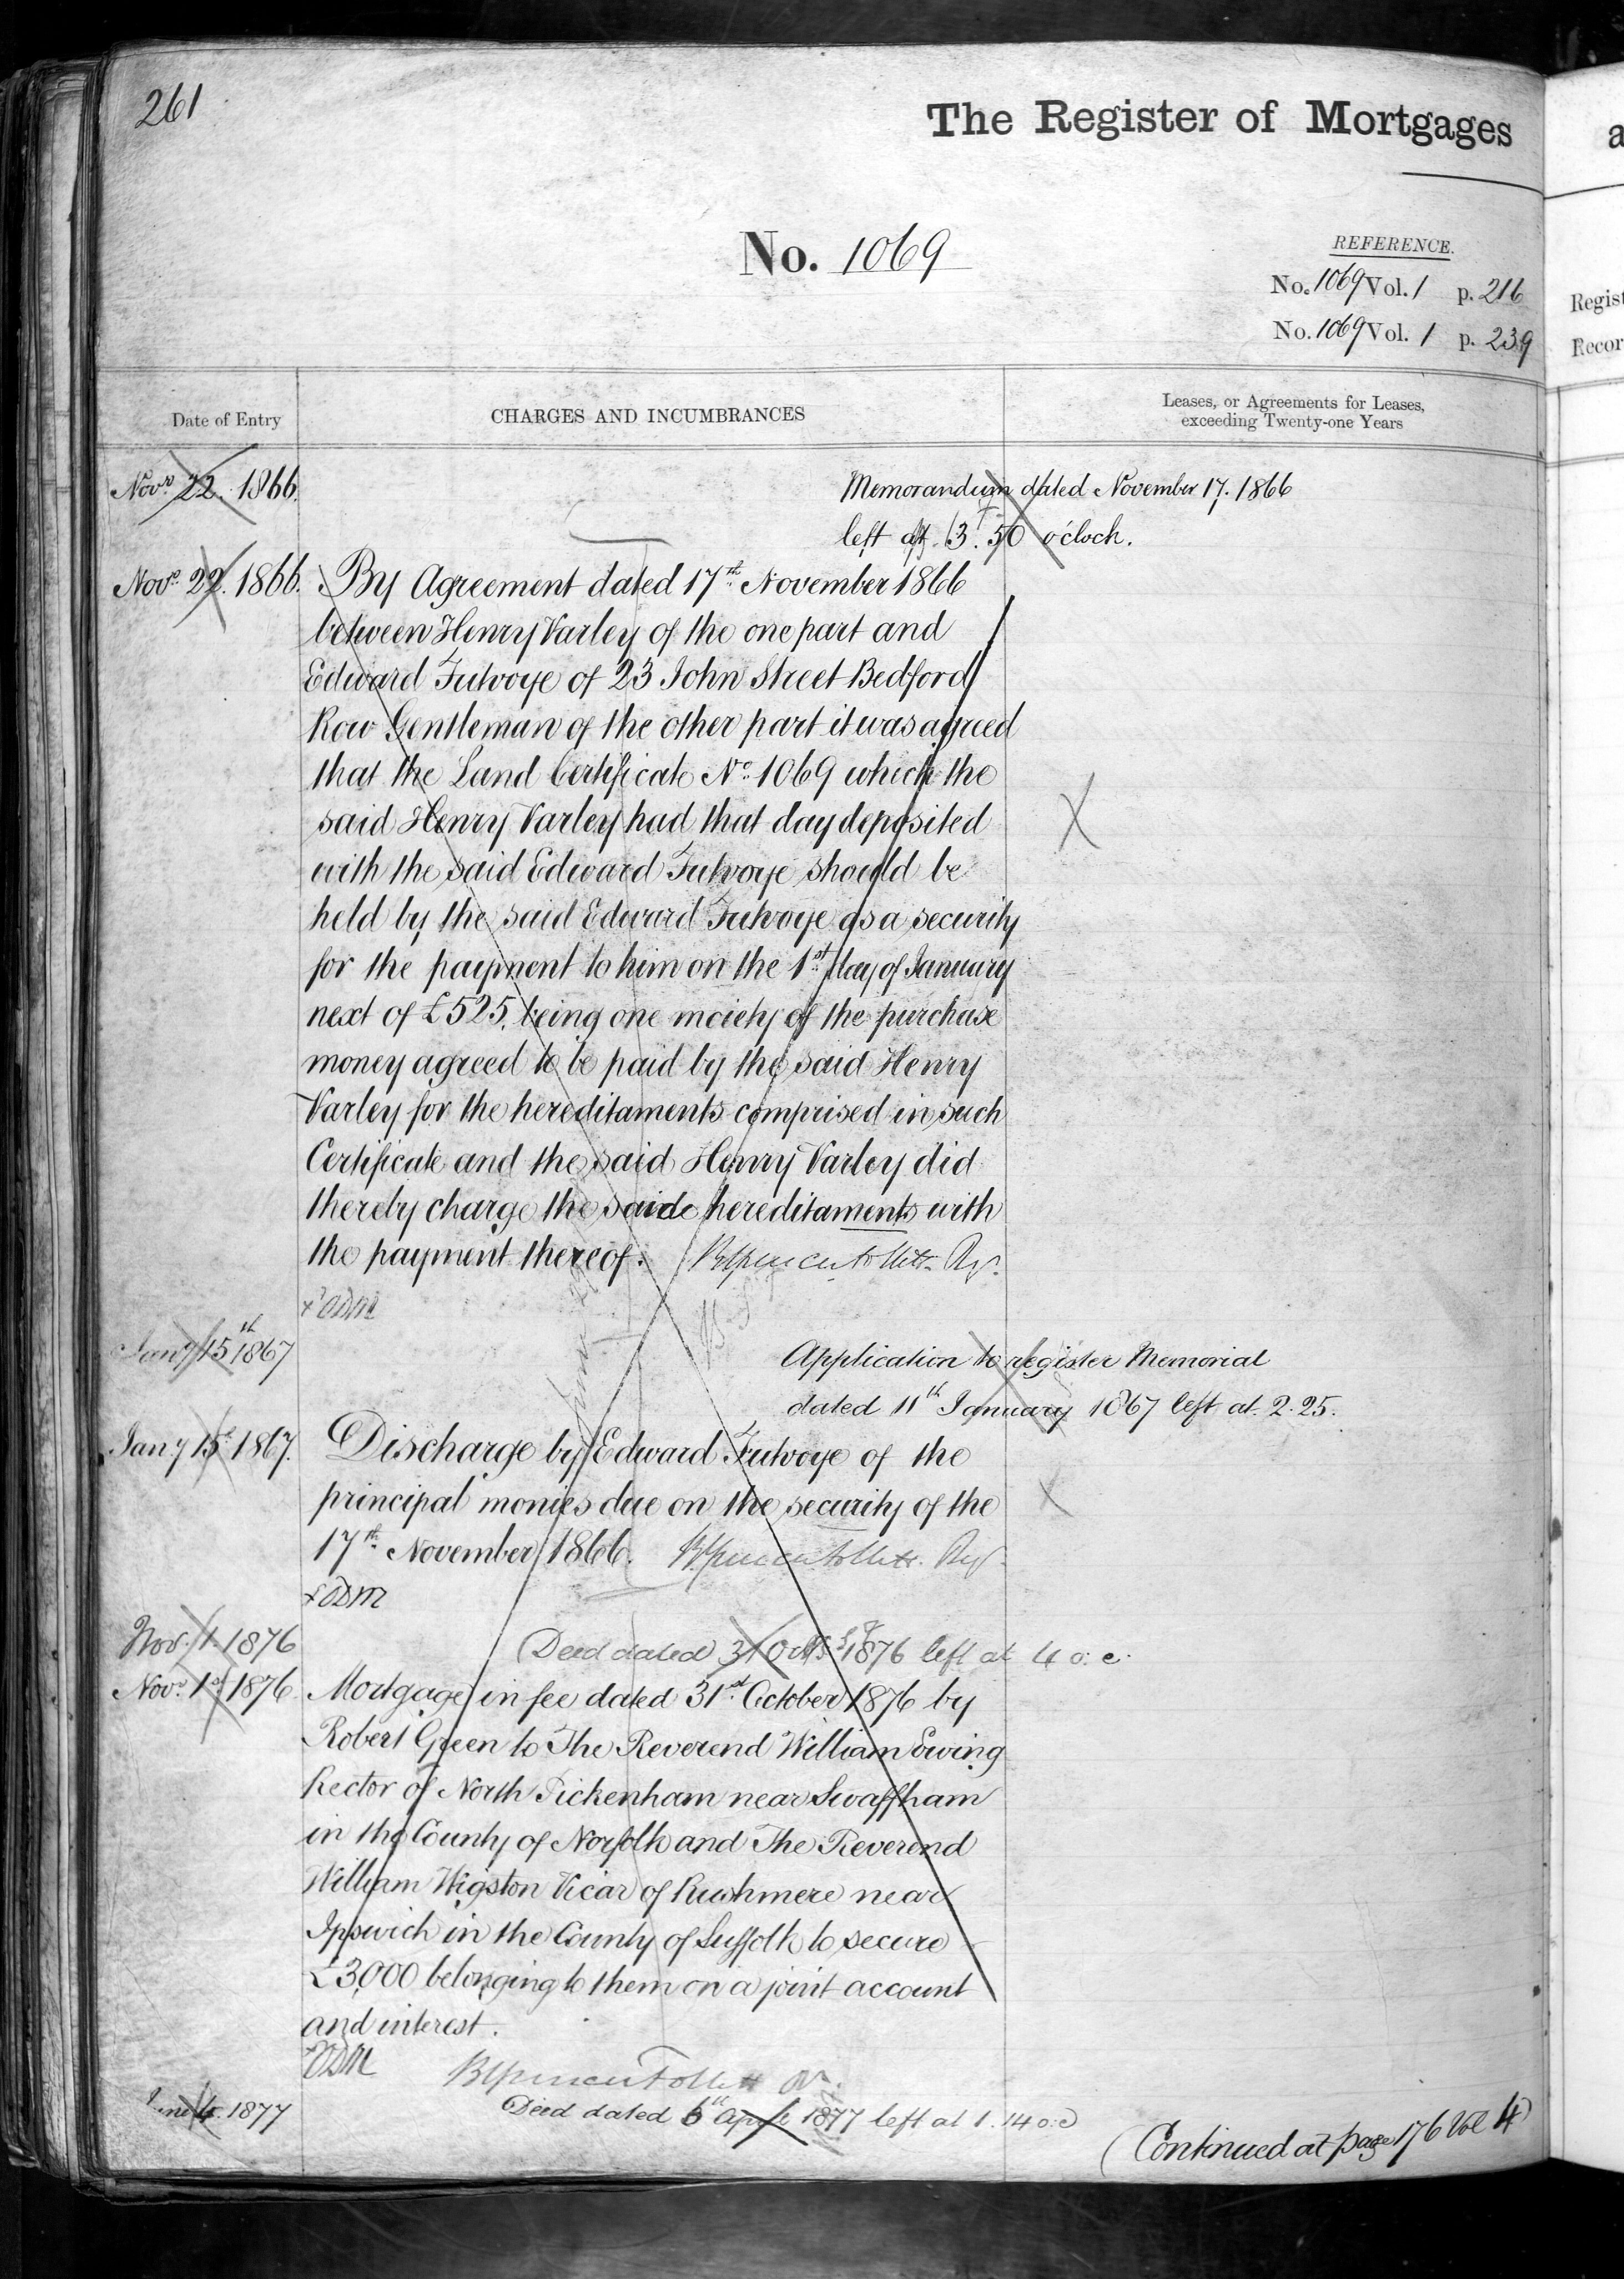 261
The Register of Mortgages
No. 1069
REFERENCE.
No. 1069 Vol. 1 p. 216
No. 1069 Vol. 1 p. 239
Date of Entry
CHARGES AND INCUMBRANCES
Leases, or Agreements for Leases,
exceeding Twenty-one Years
Novr. 22. 1866.
Memorandum dated November 17. 1866
left at 3.50 o'clock.
Novr. 22. 1866.
By Agreement dated 17th November 1866
between Henry Varley of the one part and
Edward Futvoye of 23 John Street Bedford
Row Gentleman of the other part it was agreed
that the Land Certificate No. 1069 which the
said Henry Varley had that day deposited
with the said Edward Futvoye should be
held by the said Edward Futvoye as a security
for the payment to him on the 1st day of January
next of £525, being one moiety of the purchase
money agreed to be paid by the said Henry
Varley for the hereditaments comprised in such
Certificate and the said Henry Varley did
thereby charge the said hereditaments with
the payment thereof.
x ODM
Jany 15th 1867
Application to register Memorial
dated 11th January 1867 left at 2.25.
Jany 15th 1867.
Discharge by Edward Futvoye of the
principal monies due on the security of the
17th November 1866.
x ODM
Nov. 1. 1876
Deed dated 31 Octr 1876 left at 4 o.c.
Novr. 1st 1876
Mortgage in fee dated 31st October 1876 by
Robert Green to The Reverend William Ewing
Rector of North Pickenham near Swaffham
in the County of Norfolk and The Reverend
William Wigston Vicar of Rushmere near
Ipswich in the County of Suffolk to secure
£3,000 belonging to them on a joint account
and interest.
ODM
June 4. 1877
Deed dated 6th April 1877 left at 1.14 o.c
(Continued at page 176 Vol 4)
a
Regist
Recor